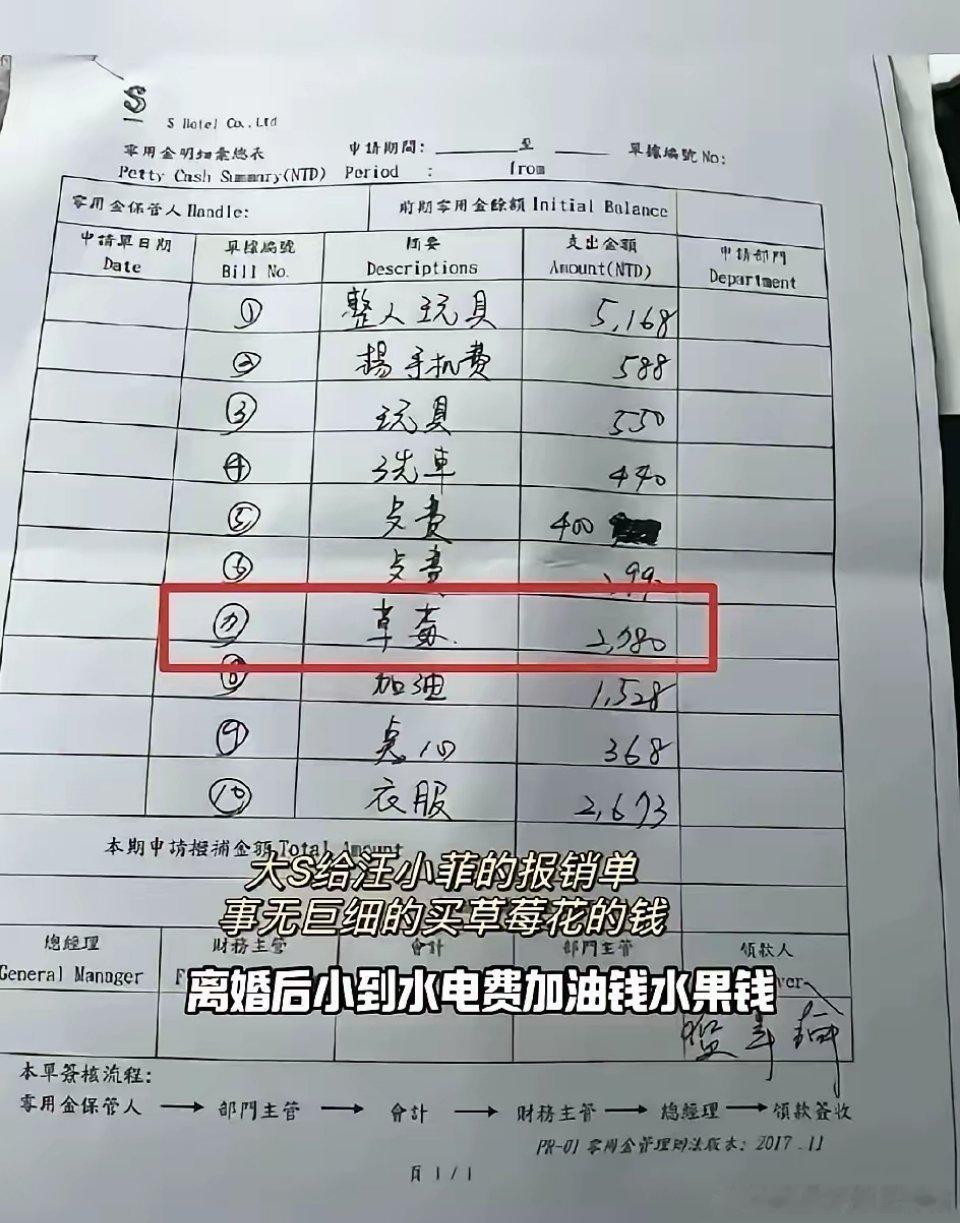 S
S Hotel Co., Ltd
零用金明細彙總表 申請期間: 至 單據編號 No:
Petty Cash Summary(NTD) Period : from
零用金保管人 Handle: 前期零用金餘額 Initial Balance
申請單日期 單據編號 摘要 支出金額 申請部門
Date Bill No. Descriptions Amount(NTD) Department
① 整人玩具 5,168
② 楊手机費 588
③ 玩具 550
④ 洗車 440
⑤ 点費 400
⑥ 点費
⑦ 草莓 2,980
⑧ 加油 1,528
⑨ 点心 368
⑩ 衣服 2,673
本期申請撥補金額 Total Amount
大S给汪小菲的报销单
事无巨细的买草莓花的钱
總經理 財務主管 會計 部門主管 領款人
General Manager
离婚后小到水电费加油钱水果钱
本單簽核流程:
零用金保管人 → 部門主管 → 會計 → 財務主管 → 總經理 → 領款簽收
PR-01 零用金管理辦法版本: 2017.11
頁 1/1